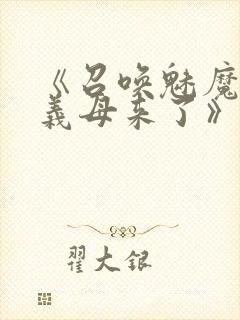 《召唤魅魔
義母来了》
翟大银